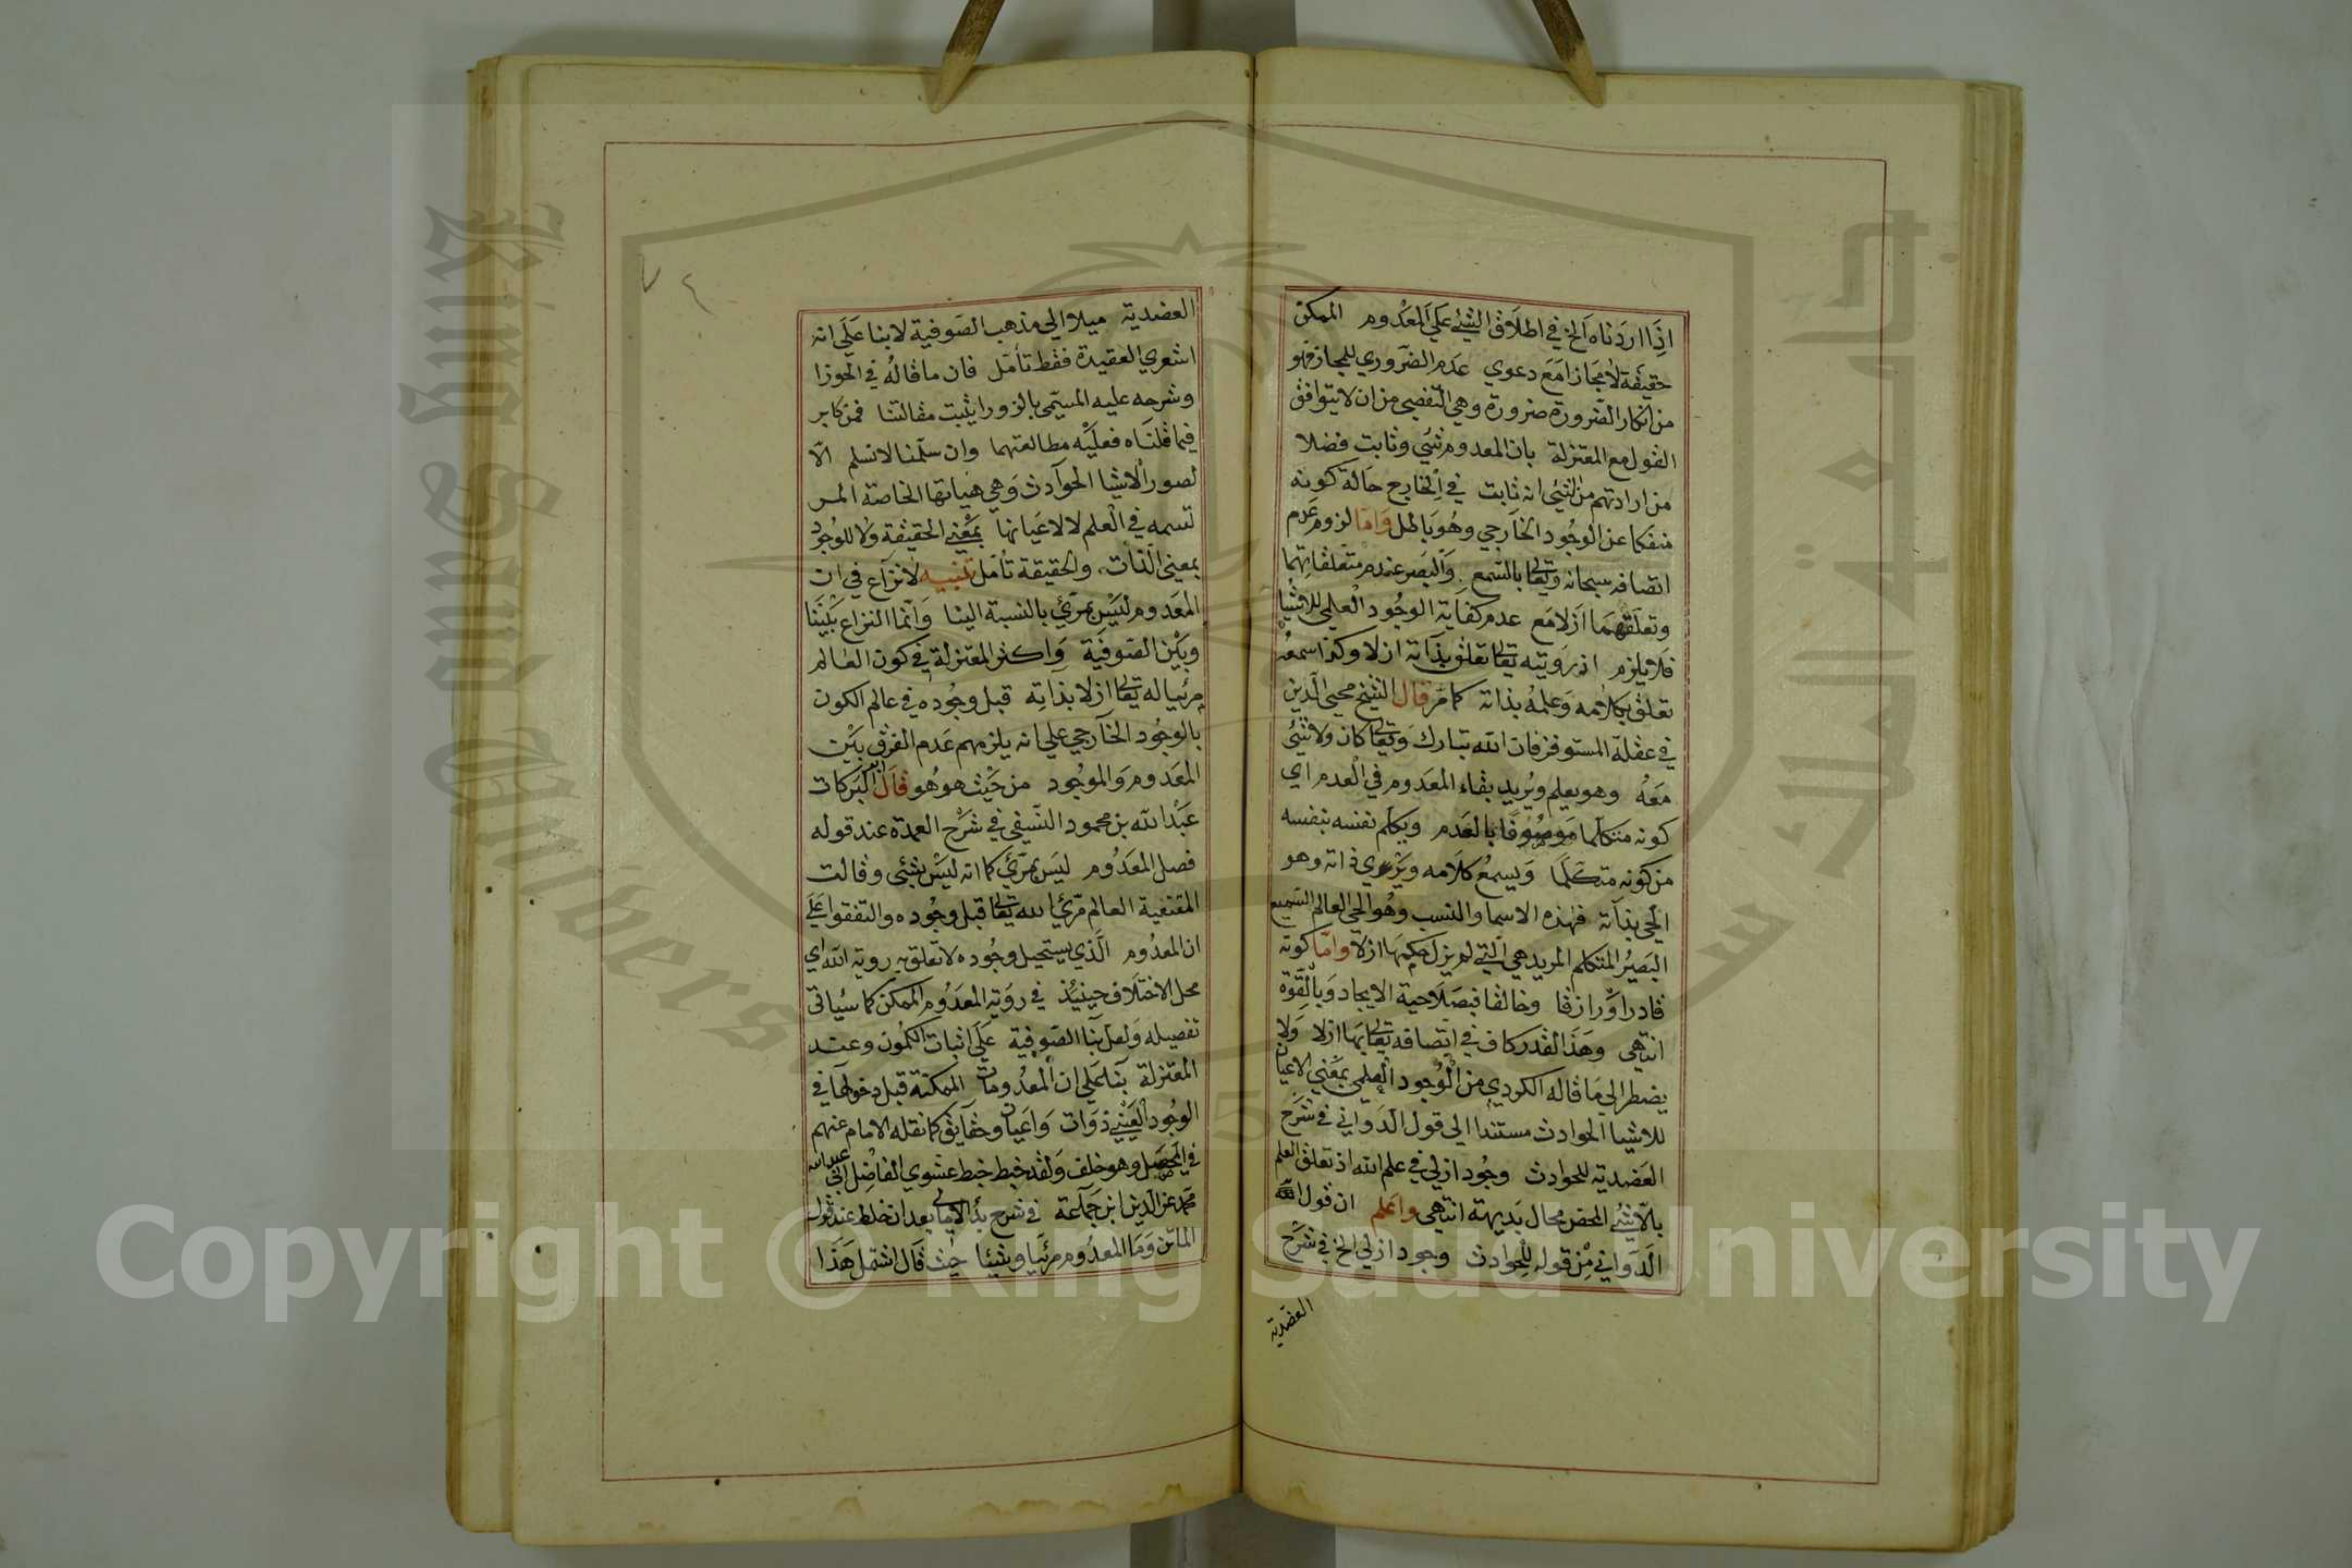 اذا اردناه الخ في اطلاق الشئ على المعدوم الممكن
حقيقة لا مجازا مع دعوي عدم الضروري للمجاز فهو
من انكار الضرورة ضرورة وهي التفصي من ان لا يتوافق
القول مع المعتزلة بان المعدوم شئ وثابت فضلا
من ارادتهم من الشئ انه ثابت في الخارج حالة كونه
منفكا عن الوجود الخارجي وهو باطل واما لزوم عدم
اتصافه سبحانه وتعالى بالسمع والبصر عند عدم متعلقاتهما
وتعلقهما ازلا مع عدم كفاية الوجود العلمي للاشيا
فلا يلزم اذ رويته تعالى تعلق بذاته ازلا وكذا سمعه
تعلق بكلامه وعلمه بذاته كما مر قال الشيخ محيي الدين
في عقلة المستوفز فان الله تبارك وتعالى كان ولا شئ
معه وهو يعلم ويريد بقاء المعدوم في العدم اي
كونه متكلما موصوفا بالعدم ويكلم نفسه بنفسه
من كونه متكلما ويسمع كلامه ويري ذاته وهو
الحي بذاته فهذه الاسما والنسب وهو الحي العالم السميع
البصير المتكلم المريد هي التي لم يزل حكمها ازلا واما كونه
قادرا ورازقا وخالقا فبصلاحية الايجاد وبالقوة
انتهى وهذا القدر كاف في اتصافه تعالى بها ازلا ولا
يضطر الى ما قاله الكودي من الوجود العلمي بمعني الاعيان
للاشيا الحوادث مستندا الى قول الدواني في شرح
العضدية للحوادث وجود ازلي في علم الله اذ تعلق العلم
بلا شئ المحض محال بديهة انتهى واعلم ان قول
الدواني من قوله للحوادث وجود ازلي الخ في شرح
العضدية
٧٤
العضدية ميلا الى مذهب الصوفية لا بنا على انه
اشعري العقيدة فقط تأمل فان ما قاله في الحوزا
وشرحه عليه المسمى بالزورا يثبت مقالتنا فمن كابر
فيما قلناه فعليه مطالعتهما وان سلمنا لا نسلم الا
لصور الاشيا الحوادث وهي هياتها الخاصة
في العلم لا لاعيانها بمعني الحقيقة ولا للوجود
بمعنى الذات والحقيقة تأمل تنبيه لا نزاع في ان
المعدوم ليس بمرئي بالنسبة الينا وانما النزاع بيننا
وبين الصوفية واكثر المعتزلة في كون العالم
مرئيا له تعالى ازلا بذاته قبل وجوده في عالم الكون
بالوجود الخارجي علي انه يلزمهم عدم الفرق بين
المعدوم والموجود من حيث هو هو قال ابو البركات
عبد الله بن محمود النسفي في شرح العمدة عند قوله
فصل المعدوم ليس بمرئي كما انه ليس بشئى وقالت
المقنعية العالم مرئي الله تعالى قبل وجوده والتفقوا على
ان المعدوم الذي يستحيل وجوده لا تعلق به روية الله اي
محل الاختلاف حينئذ في روية المعدوم الممكن كما سياتي
تفصيله ولعل بنا الصوفية على اثبات الكمون وعند
المعتزلة بنا على ان المعدومات الممكنة قبل دخولها في
الوجود العيني ذوات واعيان وحقايق كما نقله الامام عنهم
في المحصل وهو خلف ولقد خبط خبط عشوي الفاضل ابي عبد الله
محمد عز الدين ابن جماعة في شرح بدا الامالي بعد ان خلط عند قول
الماتن وما المعدوم مرئيا وشيئا حيث قال اشتمل هذا
Copyright © King Saud University
King Saud University